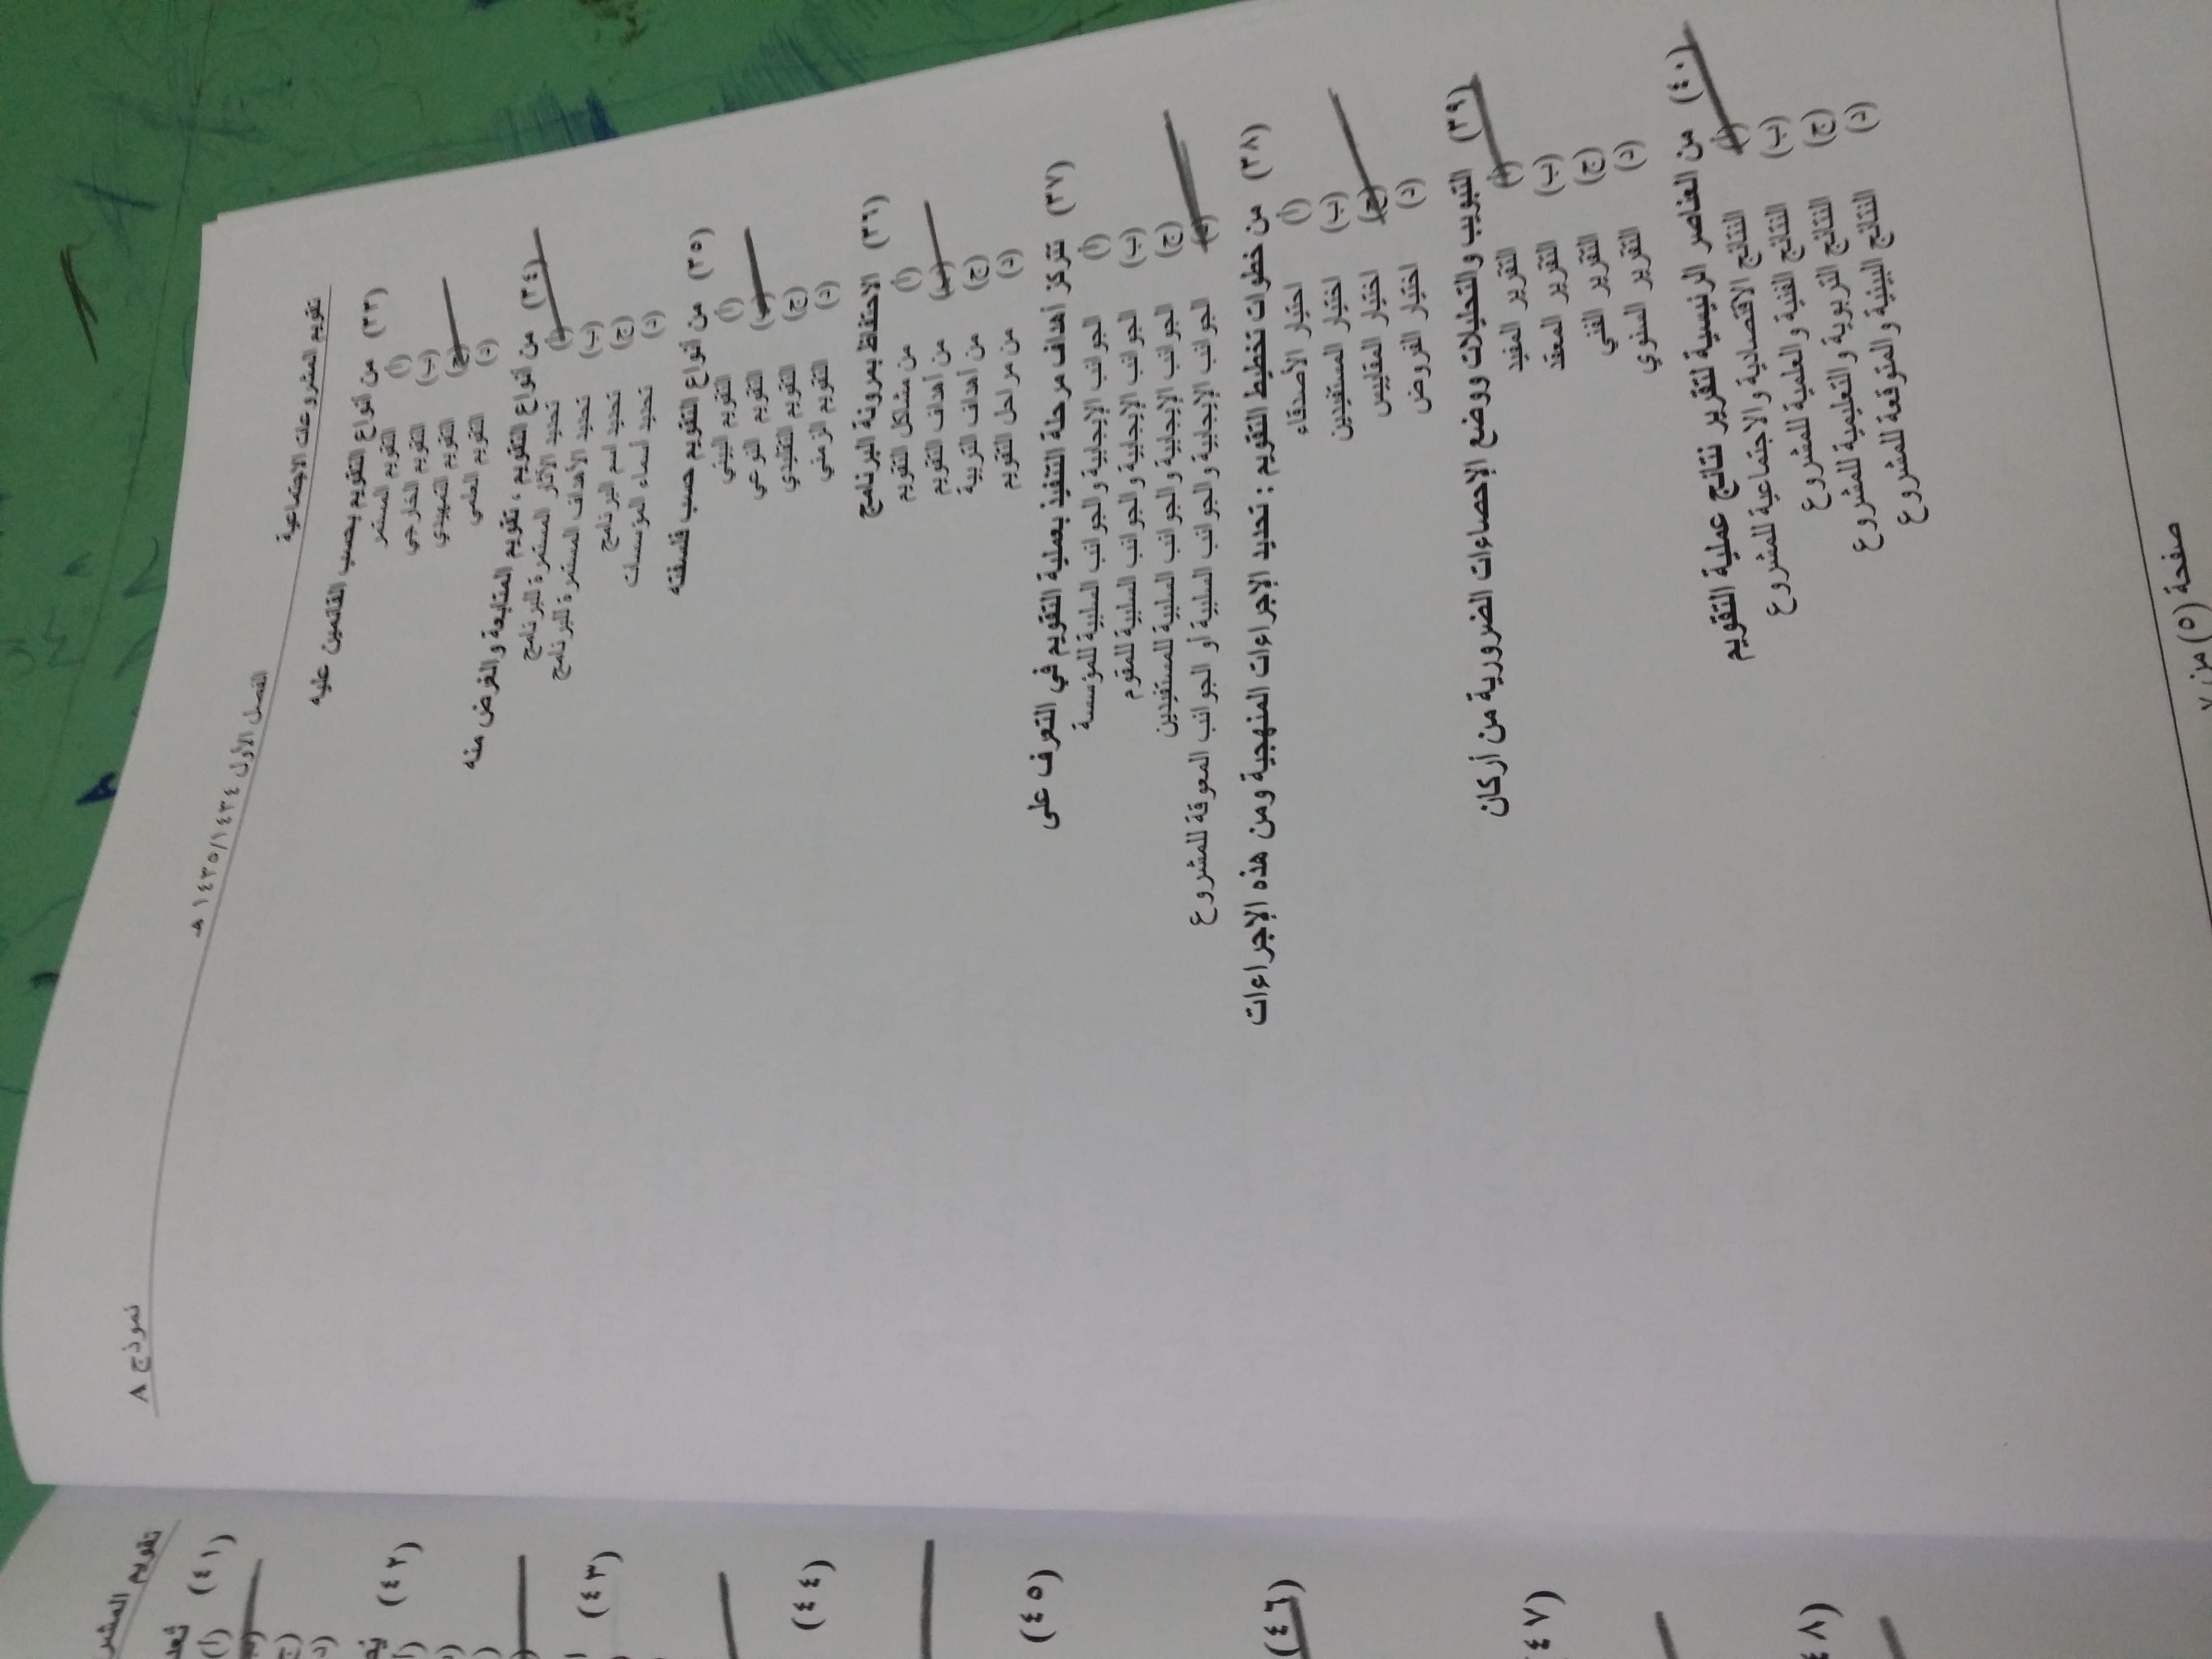 تقويم المشروعات الاجتماعية
الفصل الأول ١٤٣٥/١٤٣٤ هـ
نموذج ٨
(٣٣) من أنواع التقويم بحسب القائمين عليه
(أ) التقويم المستمر
(ب) التقويم الخارجي
(ج) التقويم التمهيدي
(د) التقويم العلمي
(٣٤) من أنواع التقويم ، تقويم المتابعة والغرض منه
(أ) تحديد الآثار المستمرة للبرنامج
(ب) تحديد الأهداف المستمرة للبرنامج
(ج) تحديد اسم البرنامج
(د) تحديد أسماء المؤسسات
(٣٥) من أنواع التقويم حسب فلسفته
(أ) التقويم البيئي
(ب) التقويم النوعي
(ج) التقويم التقليدي
(د) التقويم الزمني
(٣٦) الاحتفاظ بمرونة البرنامج
(أ) من مشاكل التقويم
(ب) من أهداف التقويم
(ج) من أهداف التربية
(د) من مراحل التقويم
(٣٧) تتركز أهداف مرحلة التنفيذ بعملية التقويم في التعرف على
(أ) الجوانب الإيجابية والجوانب السلبية للمؤسسة
(ب) الجوانب الإيجابية والجوانب السلبية للمقوم
(ج) الجوانب الإيجابية والجوانب السلبية للمستفيدين
(د) الجوانب الإيجابية والجوانب السلبية أو الجوانب المعوقة للمشروع
(٣٨) من خطوات تخطيط التقويم : تحديد الإجراءات المنهجية ومن هذه الإجراءات
(أ) اختيار الأصدقاء
(ب) اختيار المستفيدين
(ج) اختيار المقاييس
(د) اختيار الفروض
(٣٩) التبويب والتحليلات ووضع الإحصاءات الضرورية من أركان
(أ) التقرير المفيد
(ب) التقرير المعقد
(ج) التقرير الفني
(د) التقرير السنوي
(٤٠) من العناصر الرئيسية لتقرير نتائج عملية التقويم
(أ) النتائج الاقتصادية والاجتماعية للمشروع
(ب) النتائج الفنية والعلمية للمشروع
(ج) النتائج التربوية والتعليمية للمشروع
(د) النتائج البيئية والمتوقعة للمشروع
صفحة (٥) من ٧
تقويم المشر
(٤١)
(أ)
(ب)
(ج)
(د)
(٤٢)
(٤٣)
(٤٤)
(٤٥)
(٤٦)
٤٧)
٤٨)